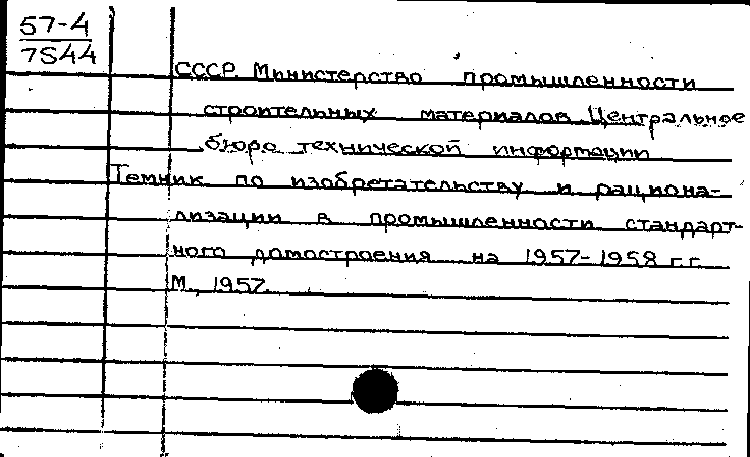 57-4
7544
СССР. Министерство промышленности
строительных материалов. Центральное
бюро технической информации
Темник по изобретательству и рациона-
лизации в промышленности стандарт-
ного домостроения на 1957-1958 г.г.
М., 1957.